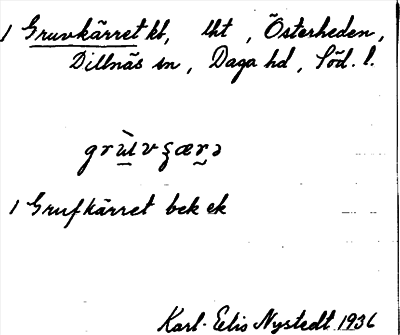 1 Gruvkärret kt, lht, Österheden,
Dillnäs sn, Daga hd, Söd. l.
grùvʒærə
1 Grufkärret bek ek
Karl-Eelis Nystedt 1936